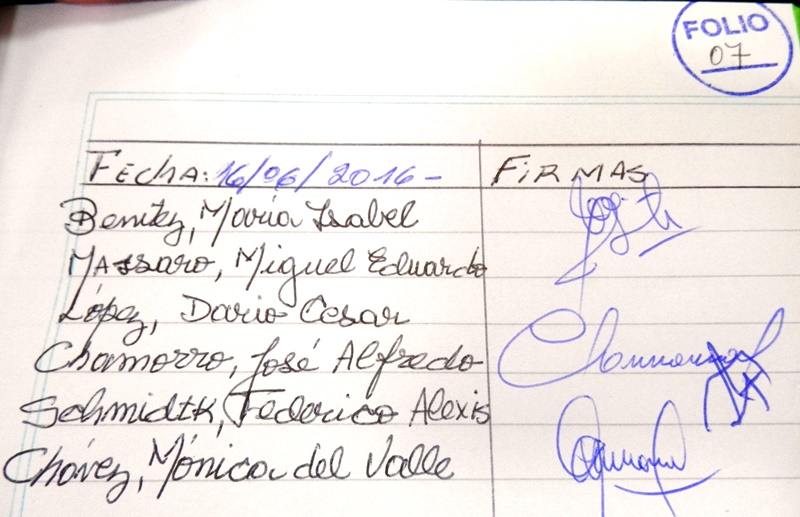 FOLIO
07
FECHA: 16/06/2016- FIRMAS
Benítez, María Isabel
MAssaro, Miguel Eduardo
López, Dario Cesar
Chamorro, José Alfredo
Schmidtk, Federico Alexis
Chávez, Mónica del Valle